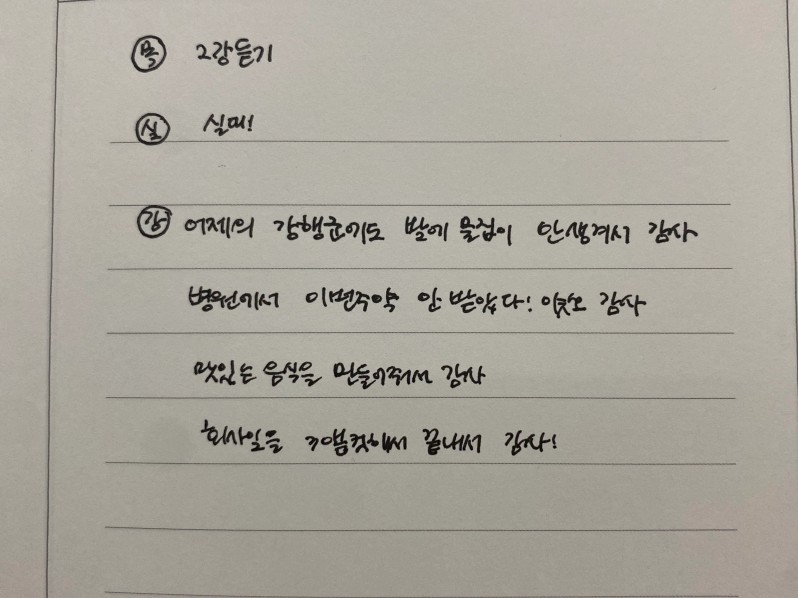 목 2강듣기
실 실패!
감 어제의 강행군에도 발에 물집이 안생겨서 감사
병원에서 이번주약 안 받았다! 이것도 감사
맛있는 음식을 만들어줘서 감사
회사일을 해서 끝내서 감사!